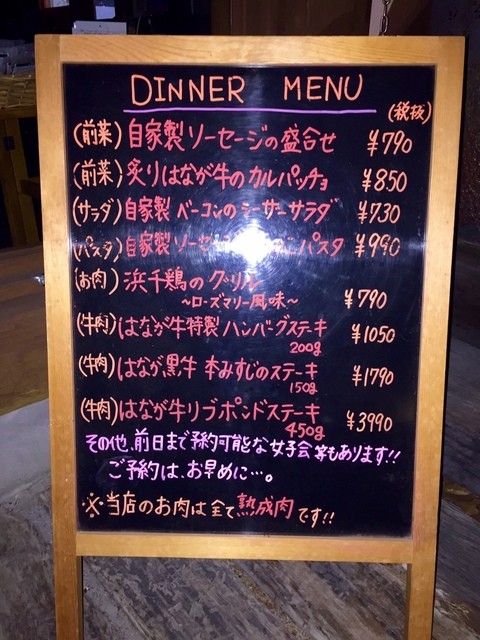 DINNER MENU
(税抜)
(前菜) 自家製ソーセージの盛合せ ¥790
(前菜) 炙りはなが牛のカルパッチョ ¥850
(サラダ) 自家製ベーコンのシーザーサラダ ¥730
(パスタ) 自家製ソーセ こパスタ ¥990
(お肉) 浜千鶏のグリル
~ローズマリー風味~ ¥790
(牛肉) はなが牛特製ハンバーグステーキ ¥1050
200g
(牛肉) はなが黒牛 本みすじのステーキ ¥1790
150g
(牛肉) はなが牛リブポンドステーキ ¥3990
450g
その他、前日まで予約可能な女子会等もあります!!
ご予約は、お早めに…。
※当店のお肉は全て熟成肉です!!